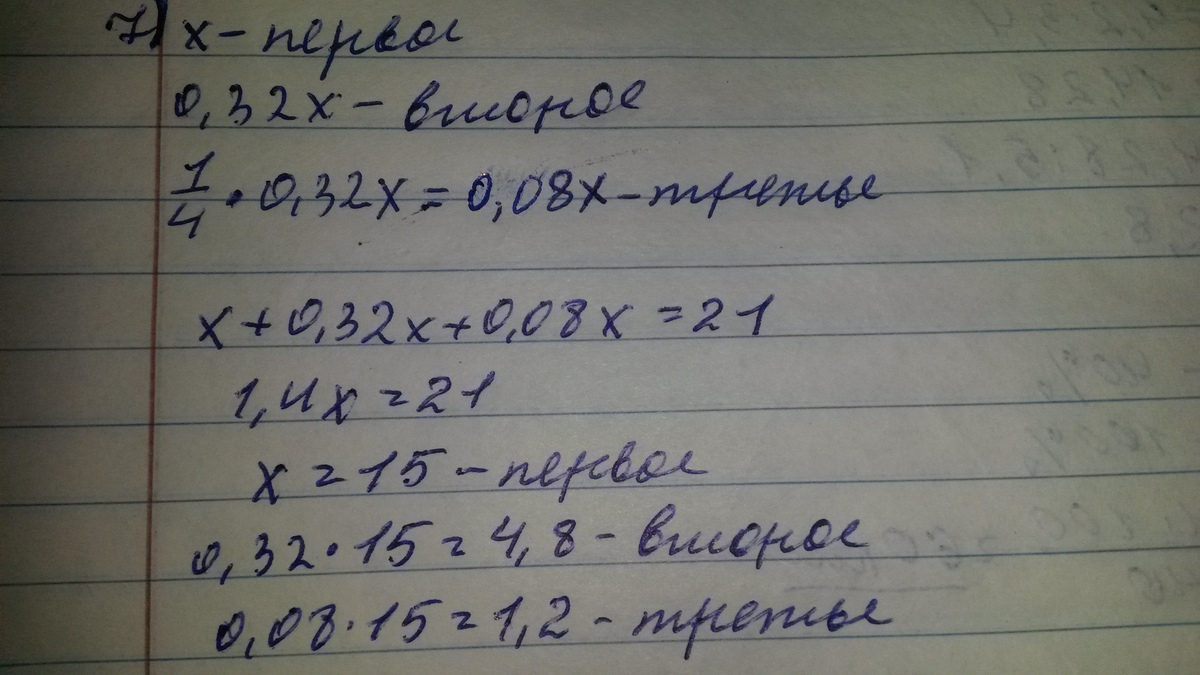 7) x – первое
0,32x – второе
1/4 · 0,32x = 0,08x – третье
x + 0,32x + 0,08x = 21
1,4x = 21
x = 15 – первое
0,32 · 15 = 4,8 – второе
0,08 · 15 = 1,2 – третье